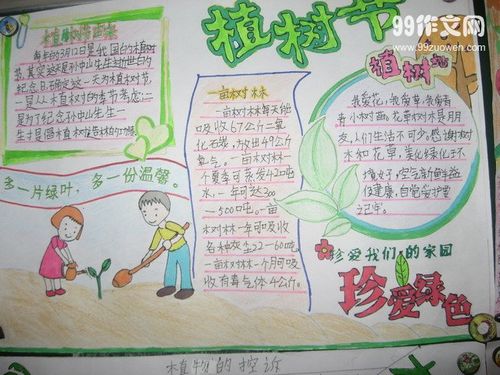 植树节
99作文网
www.99zuowen.com
每年的3月12日是我国的植树
节,其实这是孙中山先生逝世的
纪念日,而确定这一天为植树节,
一是从植树的季节考虑;二
是为了纪念孙中山先生一
生
植树造林的功绩。
多一片绿叶,多一份温馨。
一亩树林
一亩树林每天能
吸收67公斤二氧
化石炭,放出49公斤
氧气。一亩树林一
个夏季可蒸发42吨
水,一年可达300
—500吨。一亩
树林一年可吸收
各种灰尘22—60吨。
一亩树林一个月可吸
收有毒气体4公斤。
植树节
我爱花,我爱草,我爱青
青小树苗,花草树木是朋
友,人们生活不可少。感谢树
木和花草,美化绿化好环
境,空气新鲜益
健康,自觉爱护要
记牢。
珍爱我们的家园
珍爱绿色
植物的控诉